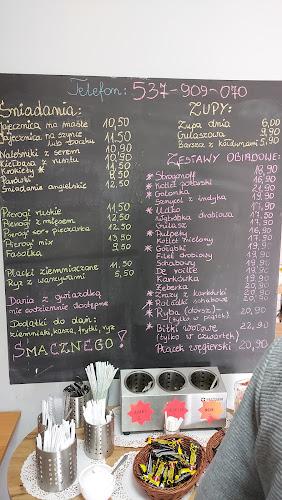 Telefon: 537-909-070
Śniadania:
Jajecznica na maśle 10,50
Jajecznica na szynce 11,50
lub boczku
Naleśniki z serem 10,90
Kiełbasa z rusztu 10,90
Krokiety * 11,50
Parówki
Śniadanie angielskie 12,50
Pierogi ruskie 11,50
Pierogi z mięsem 12,50
Pierogi ser+pieczarka 12,50
Pierogi mix 13,90
Fasolka 9,90
Placki ziemniaczane 11,50
Ryż z warzywami 5,50
Dania z gwiazdką
nie codziennie dostępne
Dodatki do dań:
ziemniaki, kasza, frytki, ryż
SMACZNEGO!
ZUPY:
Zupa dnia 6,00
Gulaszowa 9,90
Barszcz z kołdunami 5,90
ZESTAWY OBIADOWE:
* Strogonoff 18,90
* Kotlet pożarski 16,90
* Golonka 21,90
Sznycel z indyka 19,90
* Udko 17,90
Wątróbka drobiowa
Gulasz
* Pulpety
Kotlet mielony
* Gołąbki
Filet drobiowy
Schabowy
De volle
Karkówka
Żeberka
* Zrazy z karkówki
* Roladki schabowe 20,90
* Ryba (dorsz)- 20,90
(tylko w piątek)
* Bitki wołowe 22,90
(tylko w czwartek)
Placek węgierski 20,90